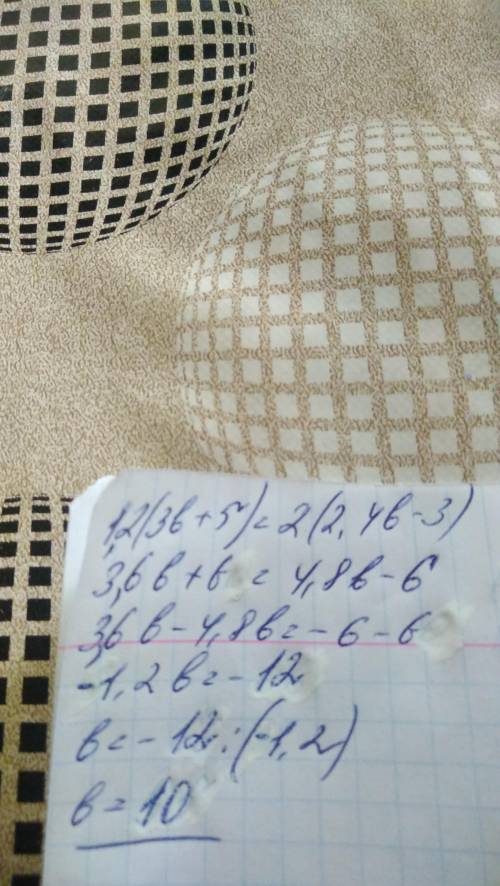 1,2(3в+5)=2(2,4в-3)
3,6в+6=4,8в-6
3,6в-4,8в=-6-6
-1,2в=-12
в=-12:(-1,2)
в=10